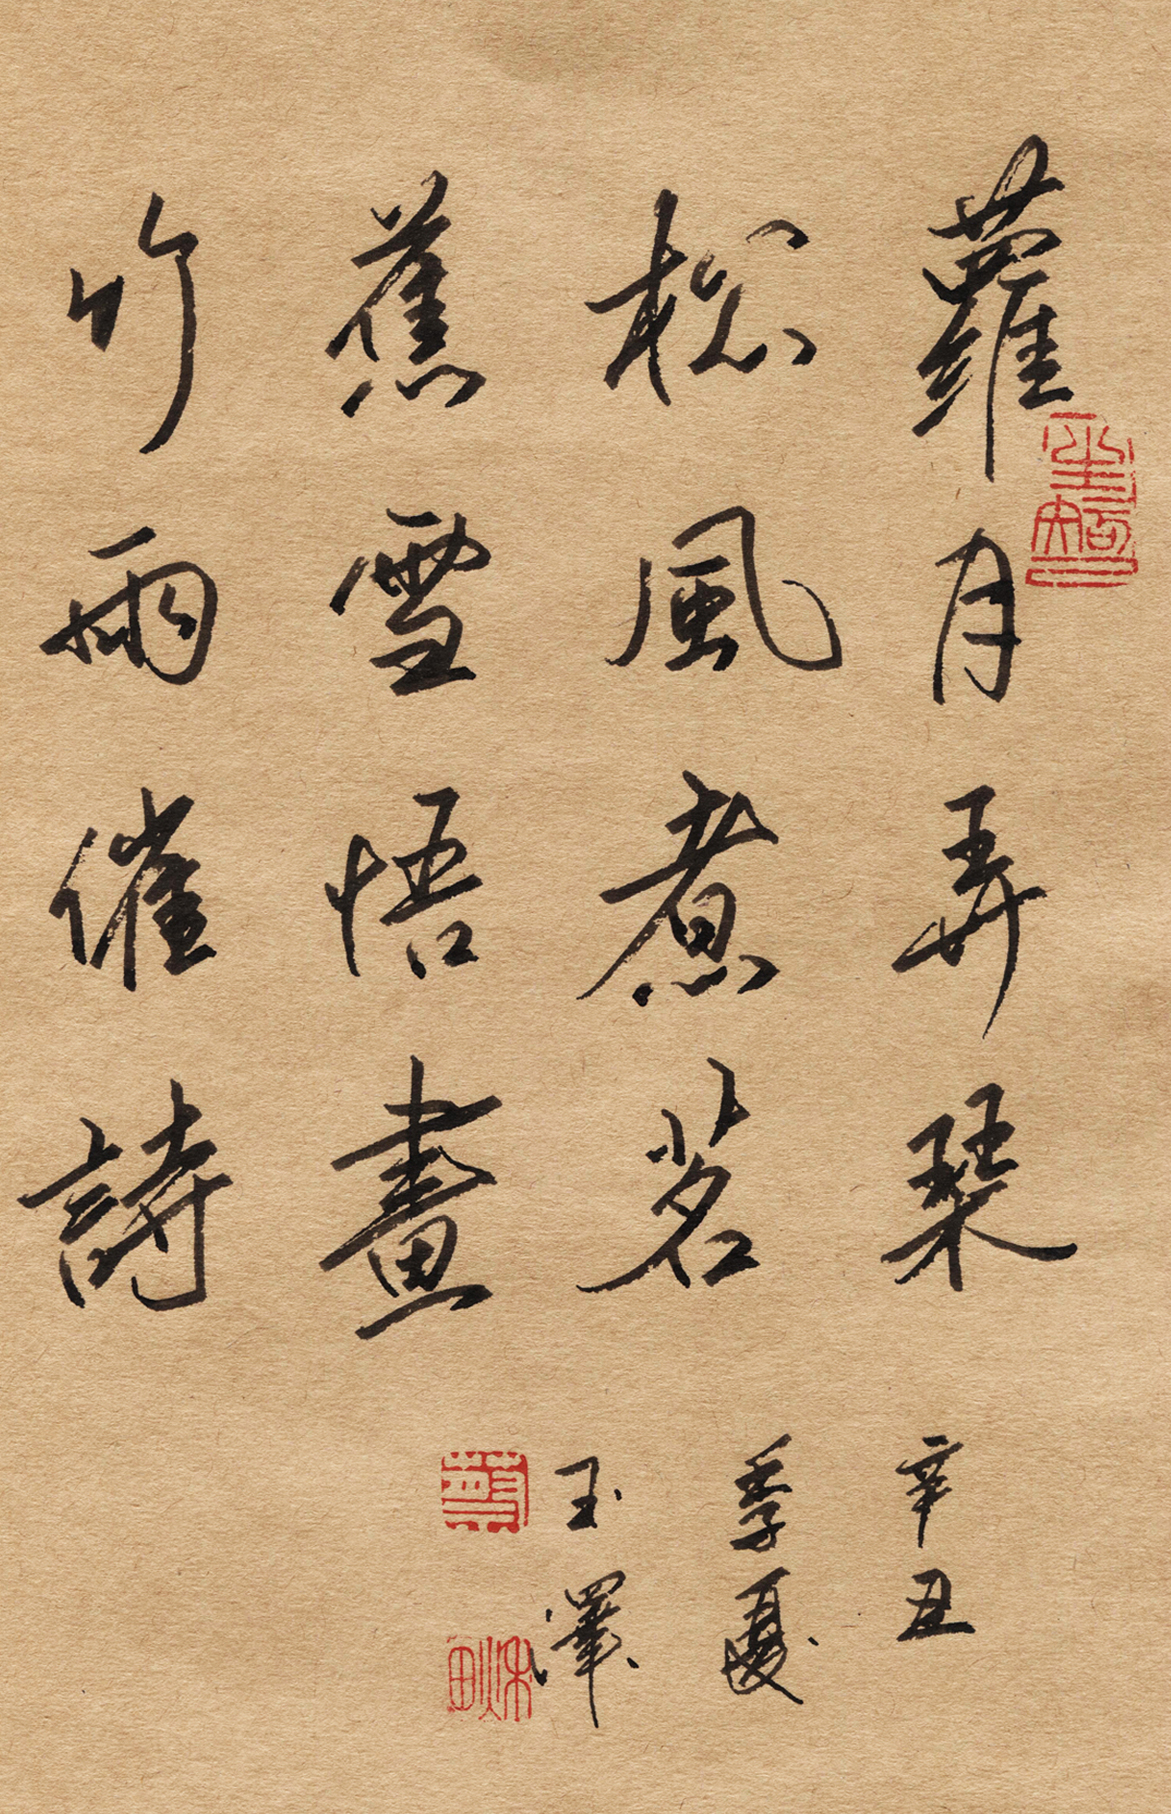 蘿月弄琴
松風煮茗
蕉雪悟畫
竹雨催詩
辛丑
季夏
玉澤